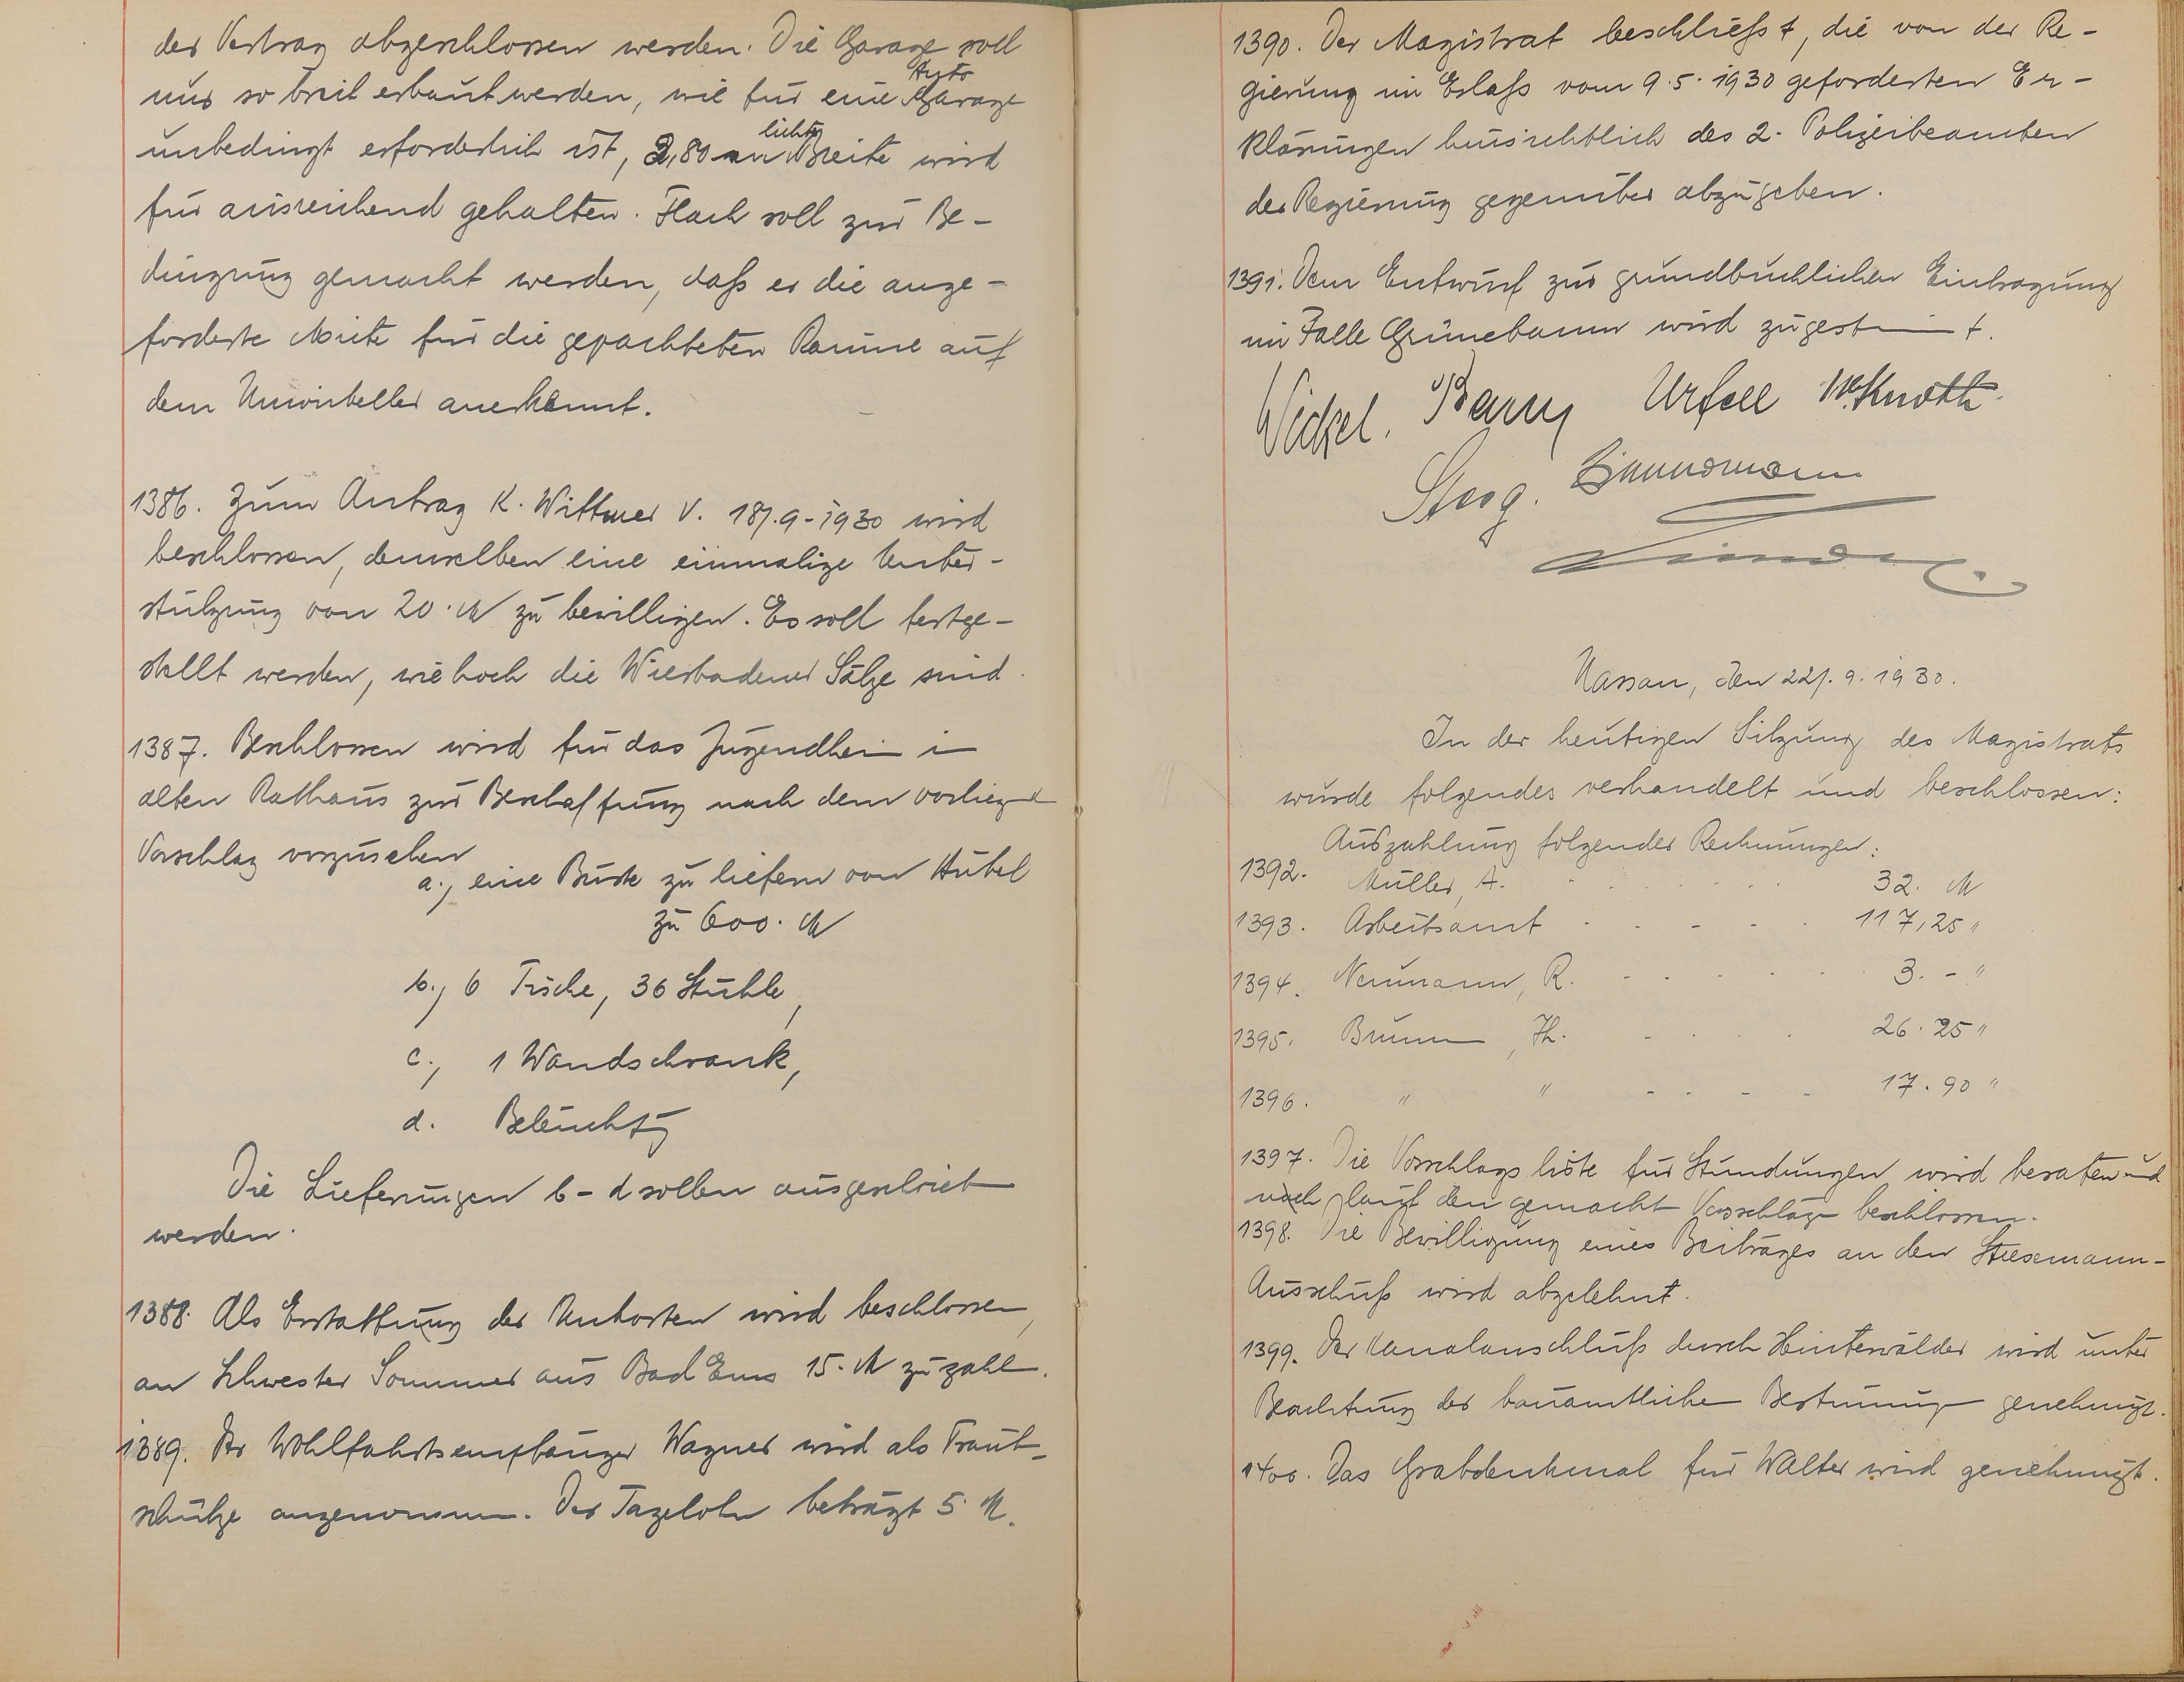 der Vertrag abgeschlossen werden. Die Garage soll
nur so breit erbaut werden, wie für eine Auto
Garage
unbedingt erforderlich ist, 2,80 m lichte Breite wird
für ausreichend gehalten. Flach soll zur Be-
dingung gemacht werden, daß er die ange-
forderte Miete für die gepachteten Räume auf
dem Unionkeller anerkennt.
1386. Zum Antrag K. Wittmer v. 18/.9.1930 wird
beschlossen, demselben eine einmalige Unter-
stützung von 20. M zu bewilligen. Es soll festge-
stellt werden, wie hoch die Wiesbadener Sätze sind.
1387. Beschlossen wird für das Jugendheim im
alten Rathaus zur Beschaffung nach dem vorliegend
Vorschlag vorzusehen
a., eine Büste zu liefern von Hubel
zu 600. M
b., 6 Tische, 36 Stühle,
c., 1 Wandschrank,
d. Beleuchtg
Die Lieferungen b-d sollen ausgeschrieb
werden.
1388. Als Erstattung der Unkosten wird beschlossen,
an Schwester Sommer aus Bad Ems 15. M zu zahl.
1389. Der Wohlfahrtsempfänger Wagner wird als Traub-
schütze angenommen. Der Tagelohn beträgt 5 M.
1390. Der Magistrat beschließt, die von der Re-
gierung im Erlaß vom 9.5.1930 geforderten Er-
klärungen hinsichtlich des 2. Polizeibeamten
der Regierung gegenüber abzugeben.
1391. Dem Entwurf zur grundbuchlichen Eintragung
im Falle Grünebaum wird zugestimmt.
Urfell W. Knoth
Zimmermann
Nassau, den 22/.9.1930.
In der heutigen Sitzung des Magistrats
wurde folgendes verhandelt und beschlossen:
Auszahlung folgender Rechnungen:
1392. Müller, A. 32. M
1393. Arbeitsamt 117,25 "
1394. Neumann, R. 3.- "
1395. Brumm, Th. 26.25 "
1396. " " 17.90 "
1397. Die Vorschlagsliste für Stundungen wird beraten und
nach lauf den gemacht Vorschläge beschlossen.
1398. Die Bewilligung eines Beitrages an den Stresemann-
Ausschuß wird abgelehnt.
1399. Der Kanalanschluß durch Hinterwälder wird unter
Beachtung der bauamtliche Bestimmung genehmigt.
1400. Das Grabdenkmal für Walter wird genehmigt.